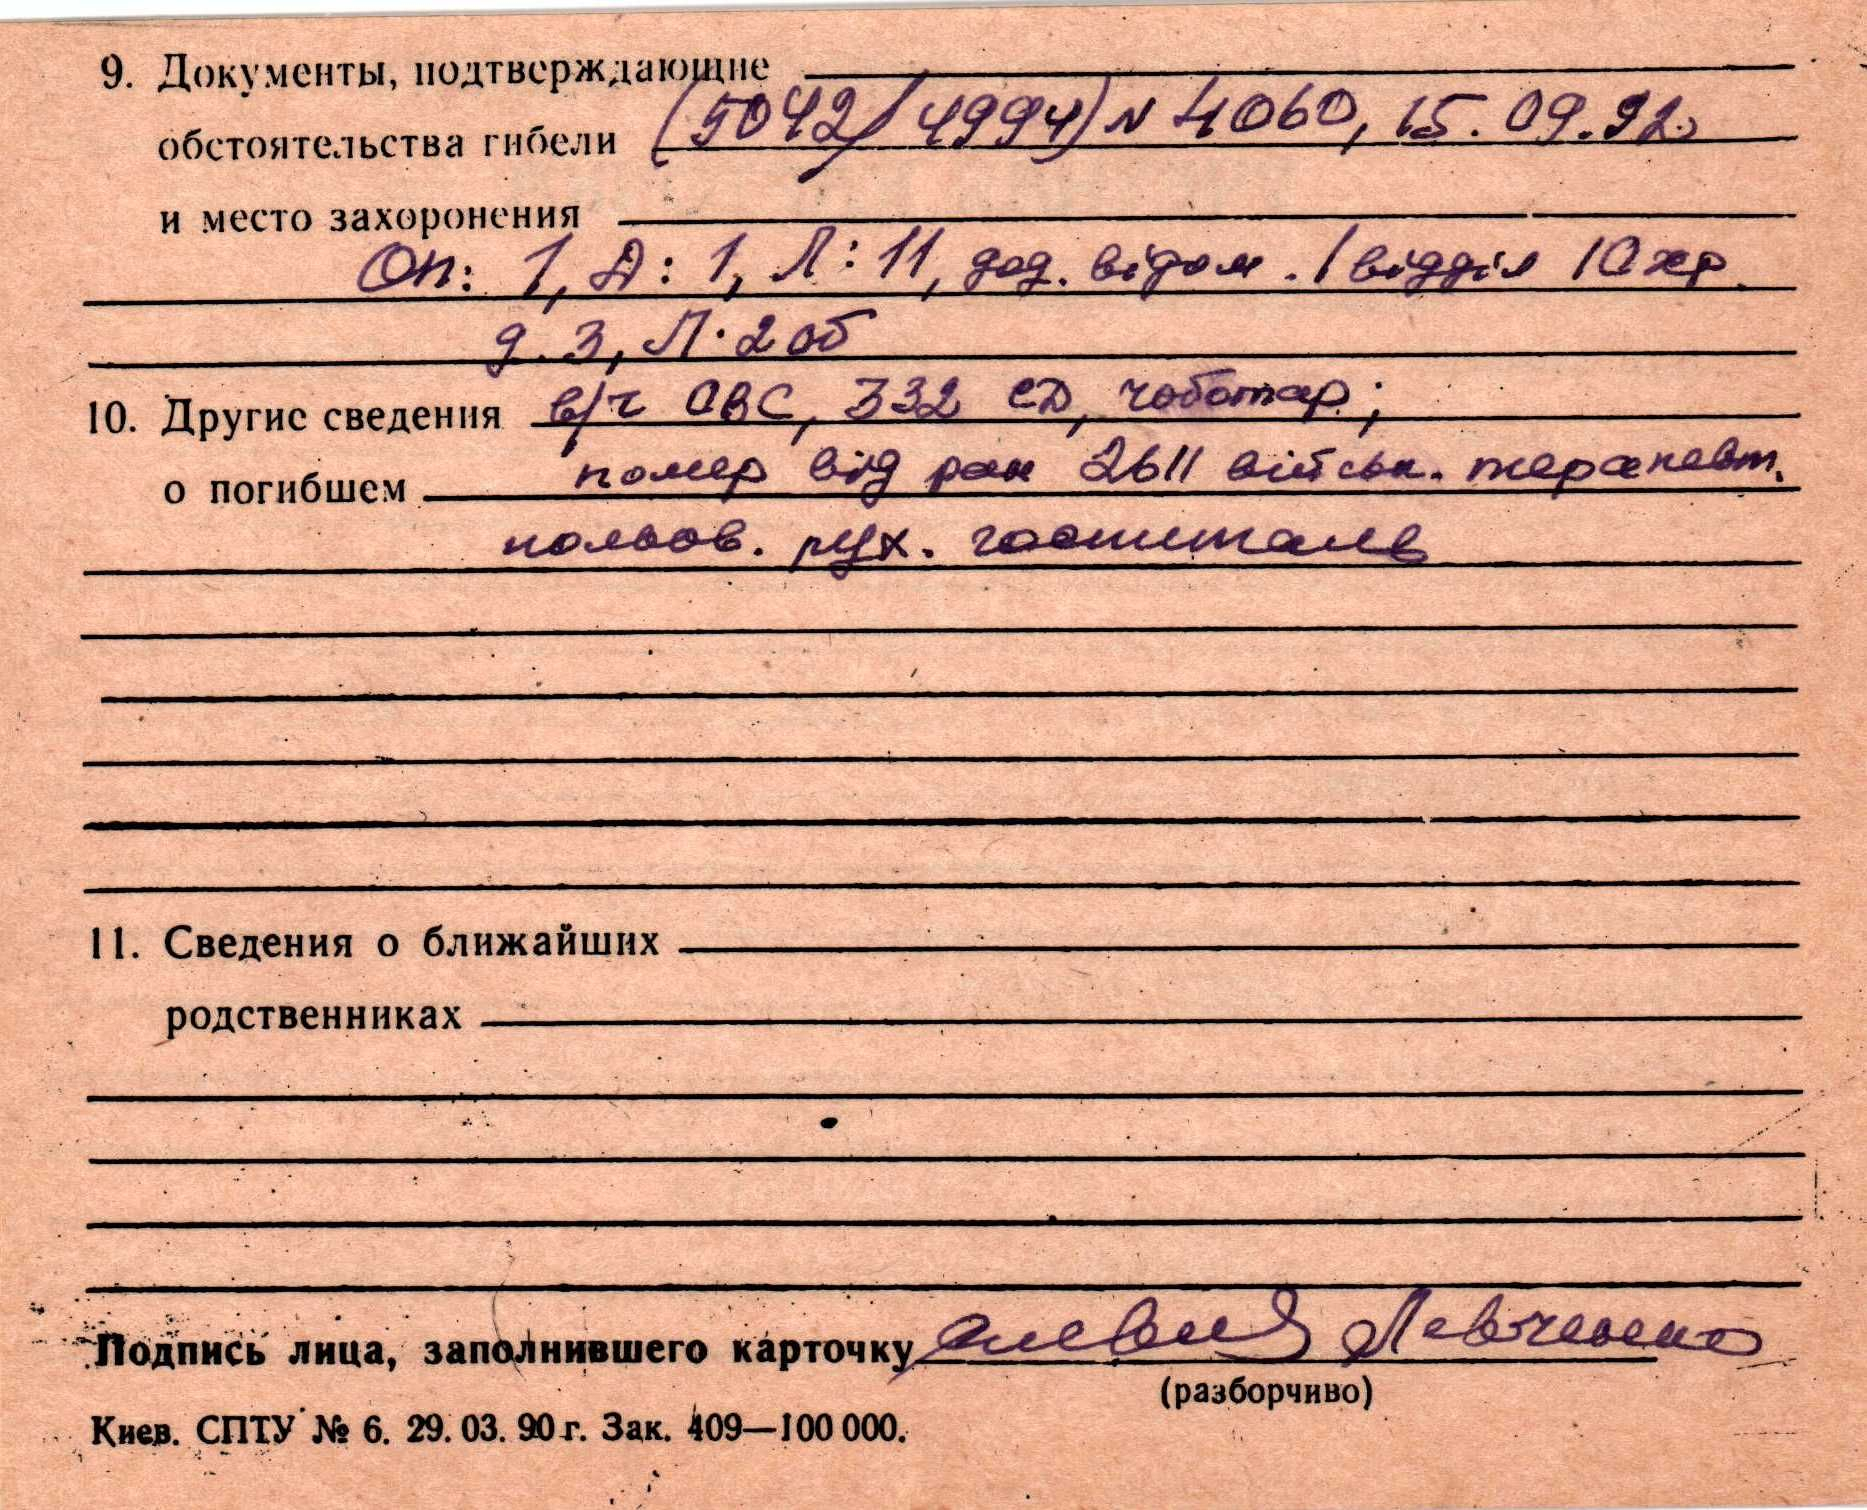 9. Документы, подтверждающие
обстоятельства гибели (5042/4994) N 4060, 15.09.92
и место захоронения
Оп: 1, Д: 1, Л: 11, дод. відом. 1 відділ 10 хр.
д. 3, Л. 2 об
10. Другие сведения в/ч ОВС, 332 СД, чоботар;
о погибшем помер від ран 2611 військ. терапевт.
польов. рух. госпиталь
11. Сведения о ближайших
родственниках
Подпись лица, заполнившего карточку Левченко
(разборчиво)
Киев. СПТУ № 6. 29. 03. 90 г. Зак. 409—100 000.